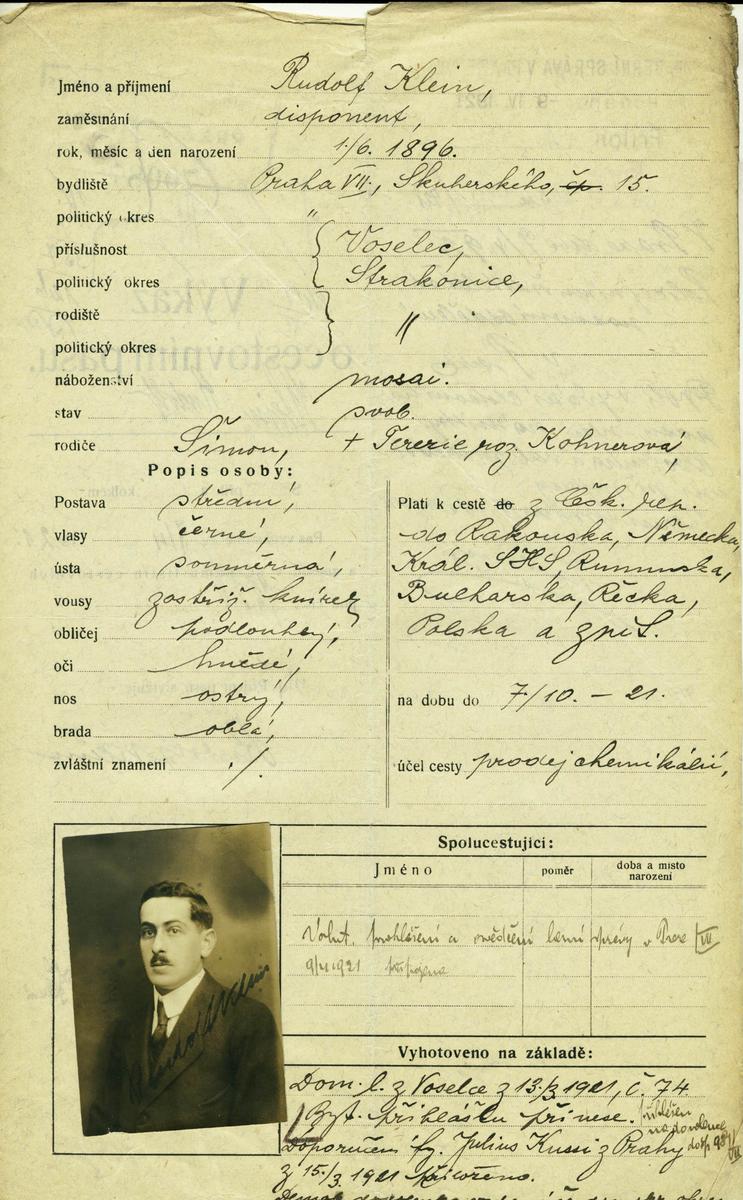 Jméno a příjmení Rudolf Klein,
zaměstnání disponent,
rok, měsíc a den narození 1./6. 1896.
bydliště Praha VII., Skuherského, čp. 15.
politický okres "
příslušnost Voselec,
politický okres Strakonice,
rodiště "
politický okres
náboženství mosai.
stav svob.
rodiče Šimon, + Terezie roz. Kohnerová,
Popis osoby:
Postava střední,
vlasy černé,
ústa souměrná,
vousy zastřiž. knírek
obličej podlouhlý,
oči hnědé,
nos ostrý,
brada oblá,
zvláštní znamení ./.
Platí k cestě do z Čsk. rep.
do Rakouska, Německa,
Král. SHS, Rumunska,
Bulharska, Řecka,
Polska a zpět.
na dobu do 7/10. – 21.
účel cesty prodej chemikálií,
Rudolf Klein
Spolucestující:
Jméno poměr doba a místo narození
prohlášení a svědčení správy v Praze VII
9/4 1921 připojena
Vyhotoveno na základě:
Dom. l. z Voselce z 13./3. 1921, č. 74
Byt. přihlášku přinese.
Doporučení fy. Julius Kussi z Prahy
z 15./3 1921 přiloženo.